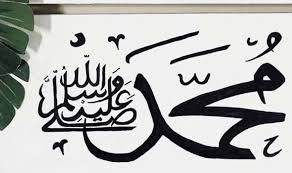 مُحَمَّد
صلى الله عليه وسلم